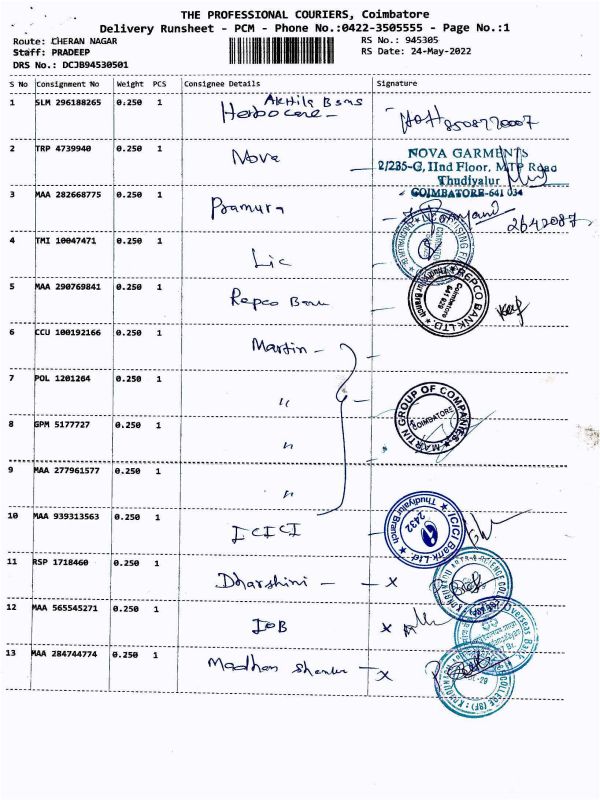 THE PROFESSIONAL COURIERS, Coimbatore
Delivery Runsheet - PCM - Phone No.:0422-3505555 - Page No.:1
Route: CHERAN NAGAR RS No.: 945305
Staff: PRADEEP RS Date: 24-May-2022
DRS No.: DCJB94530501
S No Consignment No Weight PCS Consignee Details Signature
1 SLM 296188265 0.250 1 Akhila Bsns
Herbocare - 8508770007
2 TRP 4739940 0.250 1 Nova
NOVA GARMENTS
2/235-C, IInd Floor, MTP Road
Thudiyalur
COIMBATORE-641 034
3 MAA 282668775 0.250 1 Pramura
2642087
4 TMI 10047471 0.250 1 Lic
5 MAA 290769841 0.250 1 Repco Bank
REPCO BANK LTD. Thudiyalur Branch Coimbatore 641 029
6 CCU 100192166 0.250 1 Martin -
7 POL 1201264 0.250 1 "
MARTIN GROUP OF COMPANIES COIMBATORE
8 GPM 5177727 0.250 1 "
9 MAA 277961577 0.250 1 "
10 MAA 939313563 0.250 1 ICICI
ICICI Bank Ltd Thudiyalur Branch 2432
11 RSP 1718460 0.250 1 Dharshini - x
ARTS & SCIENCE COLLEGE
12 MAA 565545271 0.250 1 IOB x
Overseas Bank
13 MAA 284744774 0.250 1 Madhan Shanker - x
COLLEGE